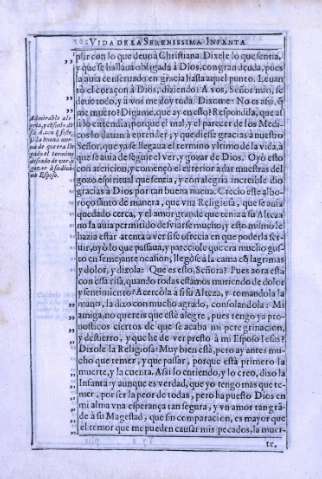 VIDA DE LA SERENISSIMA INFANTA
plir con lo que deuo à Christiana. Dixele lo que sentia,
y que se hallaua obligada à Dios, con gran deuda, pues
la auia conseruado en gracia hasta aquel punto. Leuan
tò el coraçon à Dios, diziendo: A vos, Señor mio, se
deue todo, y à vos me doy toda. Dixome: No es assi, q̃
me muero? Digame, que ay en esto? Respondila, que al
Admirable ale
gria, y el
la buena nue
ua de que era lle
gado el termino
deseado de ver y
gozar à su diui
no Esposo.
lo yo lo entendia, porque el mal, y el parecer de los Medi-
cos lo dauan à entender, y que diesse gracias à nuestro
Señor, que ya se llegaua el termino vltimo de la vida, q̃
que se auia de seguir el ver, y gozar de Dios. Oyò esto
con atencion, y començò el exterior à dar muestras del
gozo espiritual que sentia, y con alegria increible dio
gracias à Dios por tan buena nueua. Creciò este albo-
roço tanto de manera, que vna Religiosa, que se auia
quedado cerca, y el amor grande que tenia à su Alteza
no la auia permitido desviarse mucho, y esto mismo le
hazia estar atenta à ver si se ofrecia en que poderla ser-
uir, oyò lo que passaua, y pareciole que era mucho gus-
to en semejante ocasion, llegòse à la cama cõ lagrimas
y dolor, y dixola: Que es esto, Señora? Pues aora esta
con essa risa, quando todas estamos muriendo de dolor
y sentimiento? Acercòla à si su Alteza, y tomandola la
mano, la dixo con mucho agrado, consolandola: Mi
amiga, no quereis que estè alegre, pues tengo ya pro-
nosticos ciertos de que se acaba mi peregrinacion,
y destierro, y que he de ver presto à mi Esposo Iesus?
Dixole la Religiosa: Muy bien està, pero ay antes mu-
cho que temer, y que passar, porque està primero la
muerte, y la cuenta. Assi lo entiendo, y lo creo, dixo la
Infanta y aunque es verdad, que yo tengo mas que te-
mer, por ser la peor de todas, pero ha puesto Dios en
mi alma vna esperança tan segura, y vn amor tan grã-
de à su Magestad, que sin comparacion, es mayor que
el temor que me pueden causar mis pecados, la muer-
te,